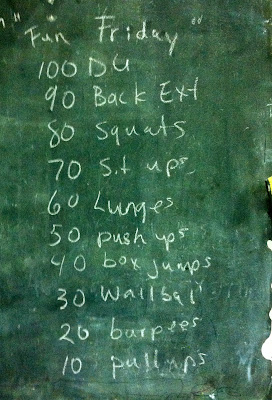 " Fun Friday "
100 DU
90 Back Ext
80 Squats
70 Sit ups
60 Lunges
50 push ups
40 box jumps
30 Wallball
20 burpees
10 pullups